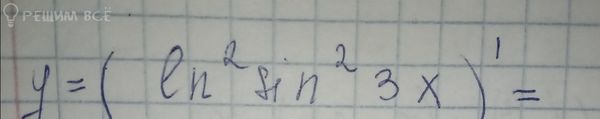 РЕШИМ ВСЁ
y = ( ln² sin² 3x )' =